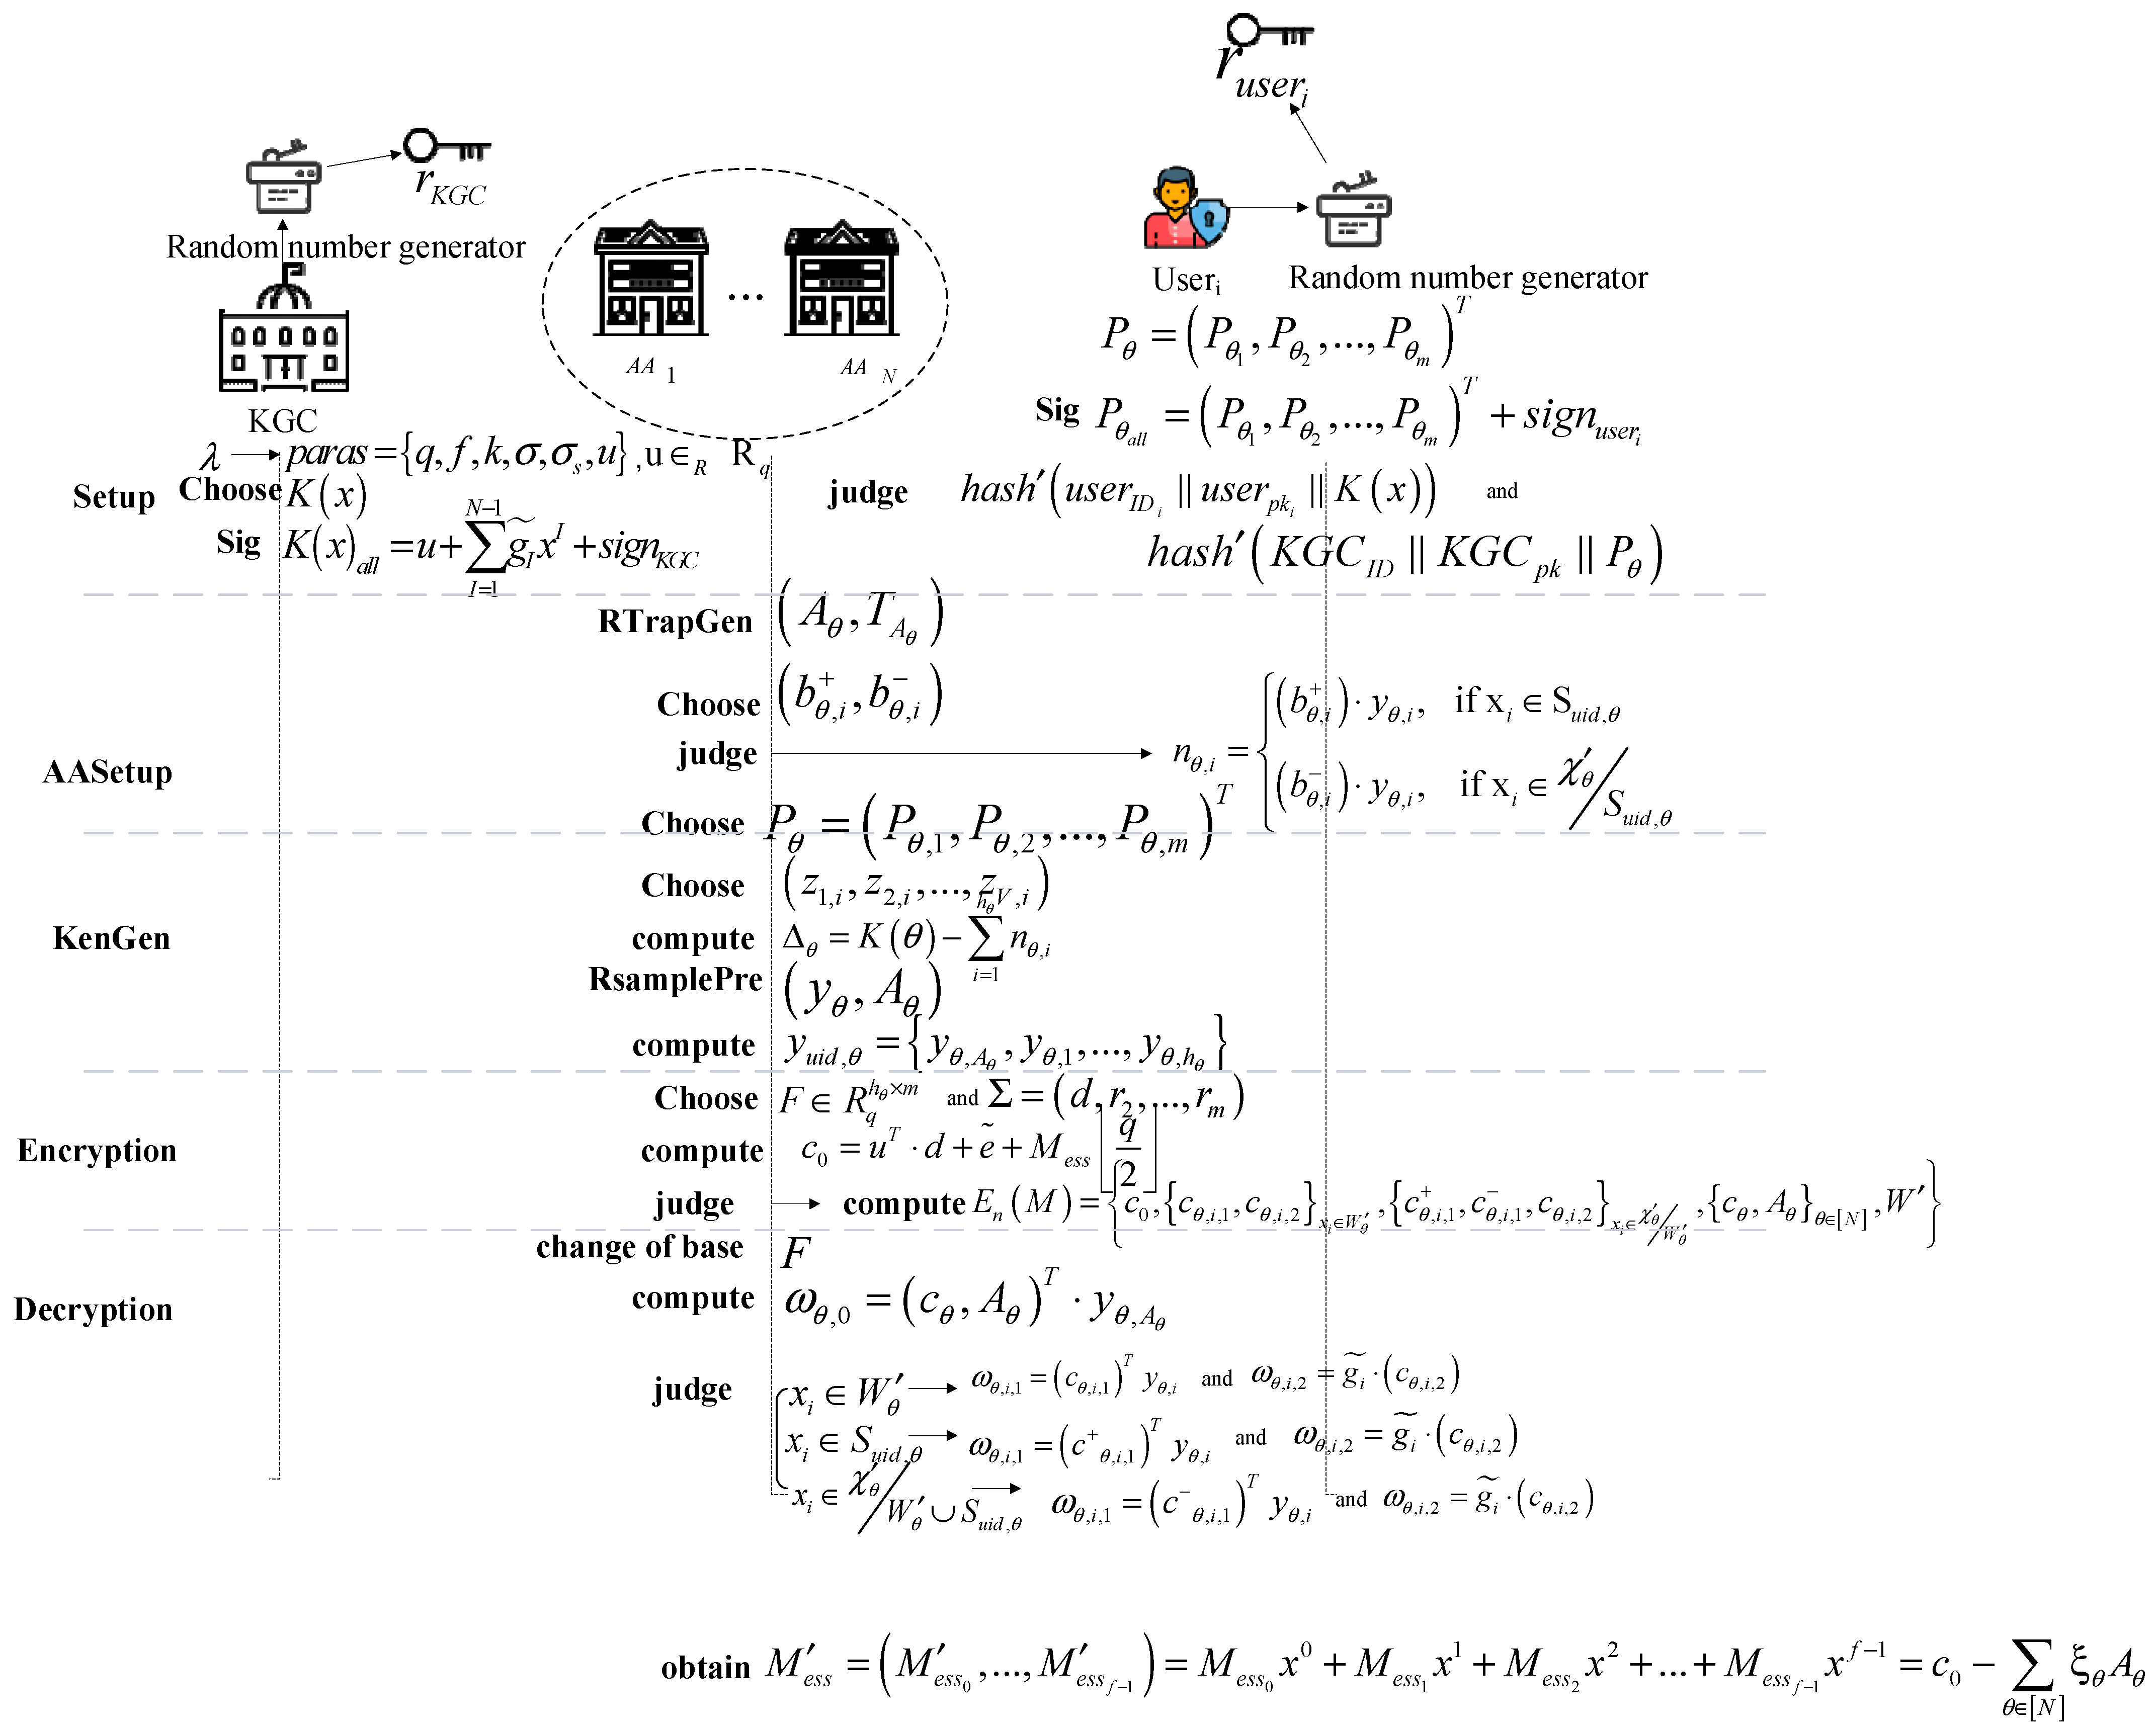 r_{user_i}
r_{KGC}
Random number generator
KGC
AA_1 ... AA_N
User_i Random number generator
P_θ = (P_{θ_1}, P_{θ_2}, ..., P_{θ_m})^T
Sig P_{θ_{all}} = (P_{θ_1}, P_{θ_2}, ..., P_{θ_m})^T + sign_{user_i}
λ → paras = {q, f, k, σ, σ_s, u}, u ∈_R R_q
Setup
Choose K(x)
Sig K(x)_{all} = u + \sum_{I=1}^{N-1} \widetilde{g}_I x^I + sign_{KGC}
judge hash′(user_{ID_i} || user_{pk_i} || K(x)) and
hash′(KGC_{ID} || KGC_{pk} || P_θ)
AASetup
RTrapGen (A_θ, T_{A_θ})
Choose (b^+_{θ,i}, b^-_{θ,i})
judge → n_{θ,i} = { (b^+_{θ,i}) · y_{θ,i}, if x_i ∈ S_{uid,θ}
(b^-_{θ,i}) · y_{θ,i}, if x_i ∈ χ′_θ / S_{uid,θ}
Choose P_θ = (P_{θ,1}, P_{θ,2}, ..., P_{θ,m})^T
KenGen
Choose (z_{1,i}, z_{2,i}, ..., z_{V,i})
compute Δ_θ = K(θ) − \sum_{i=1}^{h_θ} n_{θ,i}
RsamplePre (y_θ, A_θ)
compute y_{uid,θ} = {y_{θ,A_θ}, y_{θ,1}, ..., y_{θ,h_θ}}
Encryption
Choose F ∈ R_q^{h_θ×m} and Σ = (d, r_2, ..., r_m)
compute c_0 = u^T · d + \tilde{e} + M_{ess} ⌊q/2⌋
judge → compute E_n(M) = {c_0, {c_{θ,i,1}, c_{θ,i,2}}_{x_i∈W′_θ}, {c^+_{θ,i,1}, c^-_{θ,i,1}, c_{θ,i,2}}_{x_i∈χ′_θ/W′_θ}, {c_θ, A_θ}_{θ∈[N]}, W′}
Decryption
change of base F
compute ω_{θ,0} = (c_θ, A_θ)^T · y_{θ,A_θ}
judge x_i ∈ W′_θ → ω_{θ,i,1} = (c_{θ,i,1})^T y_{θ,i} and ω_{θ,i,2} = \widetilde{g}_i · (c_{θ,i,2})
x_i ∈ S_{uid,θ} → ω_{θ,i,1} = (c^+_{θ,i,1})^T y_{θ,i} and ω_{θ,i,2} = \widetilde{g}_i · (c_{θ,i,2})
x_i ∈ χ′_θ / W′_θ ∪ S_{uid,θ} → ω_{θ,i,1} = (c^-_{θ,i,1})^T y_{θ,i} and ω_{θ,i,2} = \widetilde{g}_i · (c_{θ,i,2})
obtain M′_{ess} = (M′_{ess_0}, ..., M′_{ess_{f−1}}) = M_{ess_0} x^0 + M_{ess_1} x^1 + M_{ess_2} x^2 + ... + M_{ess_{f−1}} x^{f−1} = c_0 − \sum_{θ∈[N]} ξ_θ A_θ